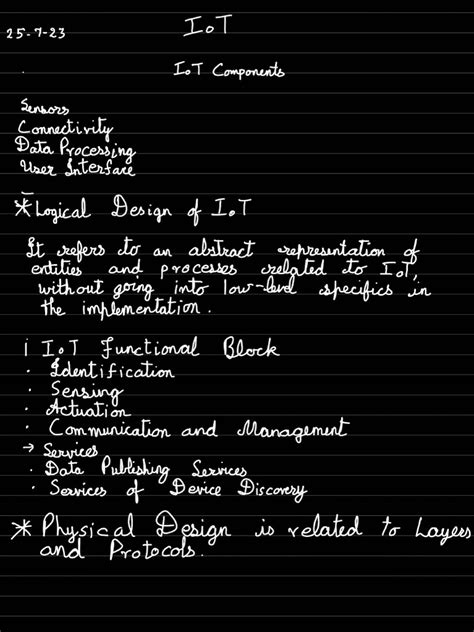 25-7-23
IoT
IoT Components
Sensors
Connectivity
Data Processing
User Interface
* Logical Design of IoT
It refers to an abstract representation of
entities and processes related to IoT,
without going into low-level specifics in
the implementation.
i IoT Functional Block
· Identification
· Sensing
· Actuation
· Communication and Management
→ Services
· Data Publishing Services
· Services of Device Discovery
* Physical Design is related to Layers
and Protocols.